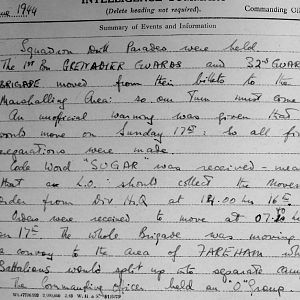 INTELLIGENCE
(Delete heading not required).
Commanding Of
une 1944
Summary of Events and Information
Squadron Drill Parades were held.
The 1st Bn GRENADIER GUARDS and 32nd GUAR
BRIGADE moved from their billets to the
Marshalling Area: so our Turn must come
An unofficial warning was given that
would move on Sunday 17th: so all fi
reparations were made.
Code Word "SUGAR" was received - mea
that an L.O. should collect the moves
rder from Div HQ at 18.00 hrs 16th
Orders were received to move at 07.
on 17th The whole Brigade was moving
a convoy to the area of FAREHAM wh
Battalions would split up into separate cam
The Commanding Officer held an "O" Group.